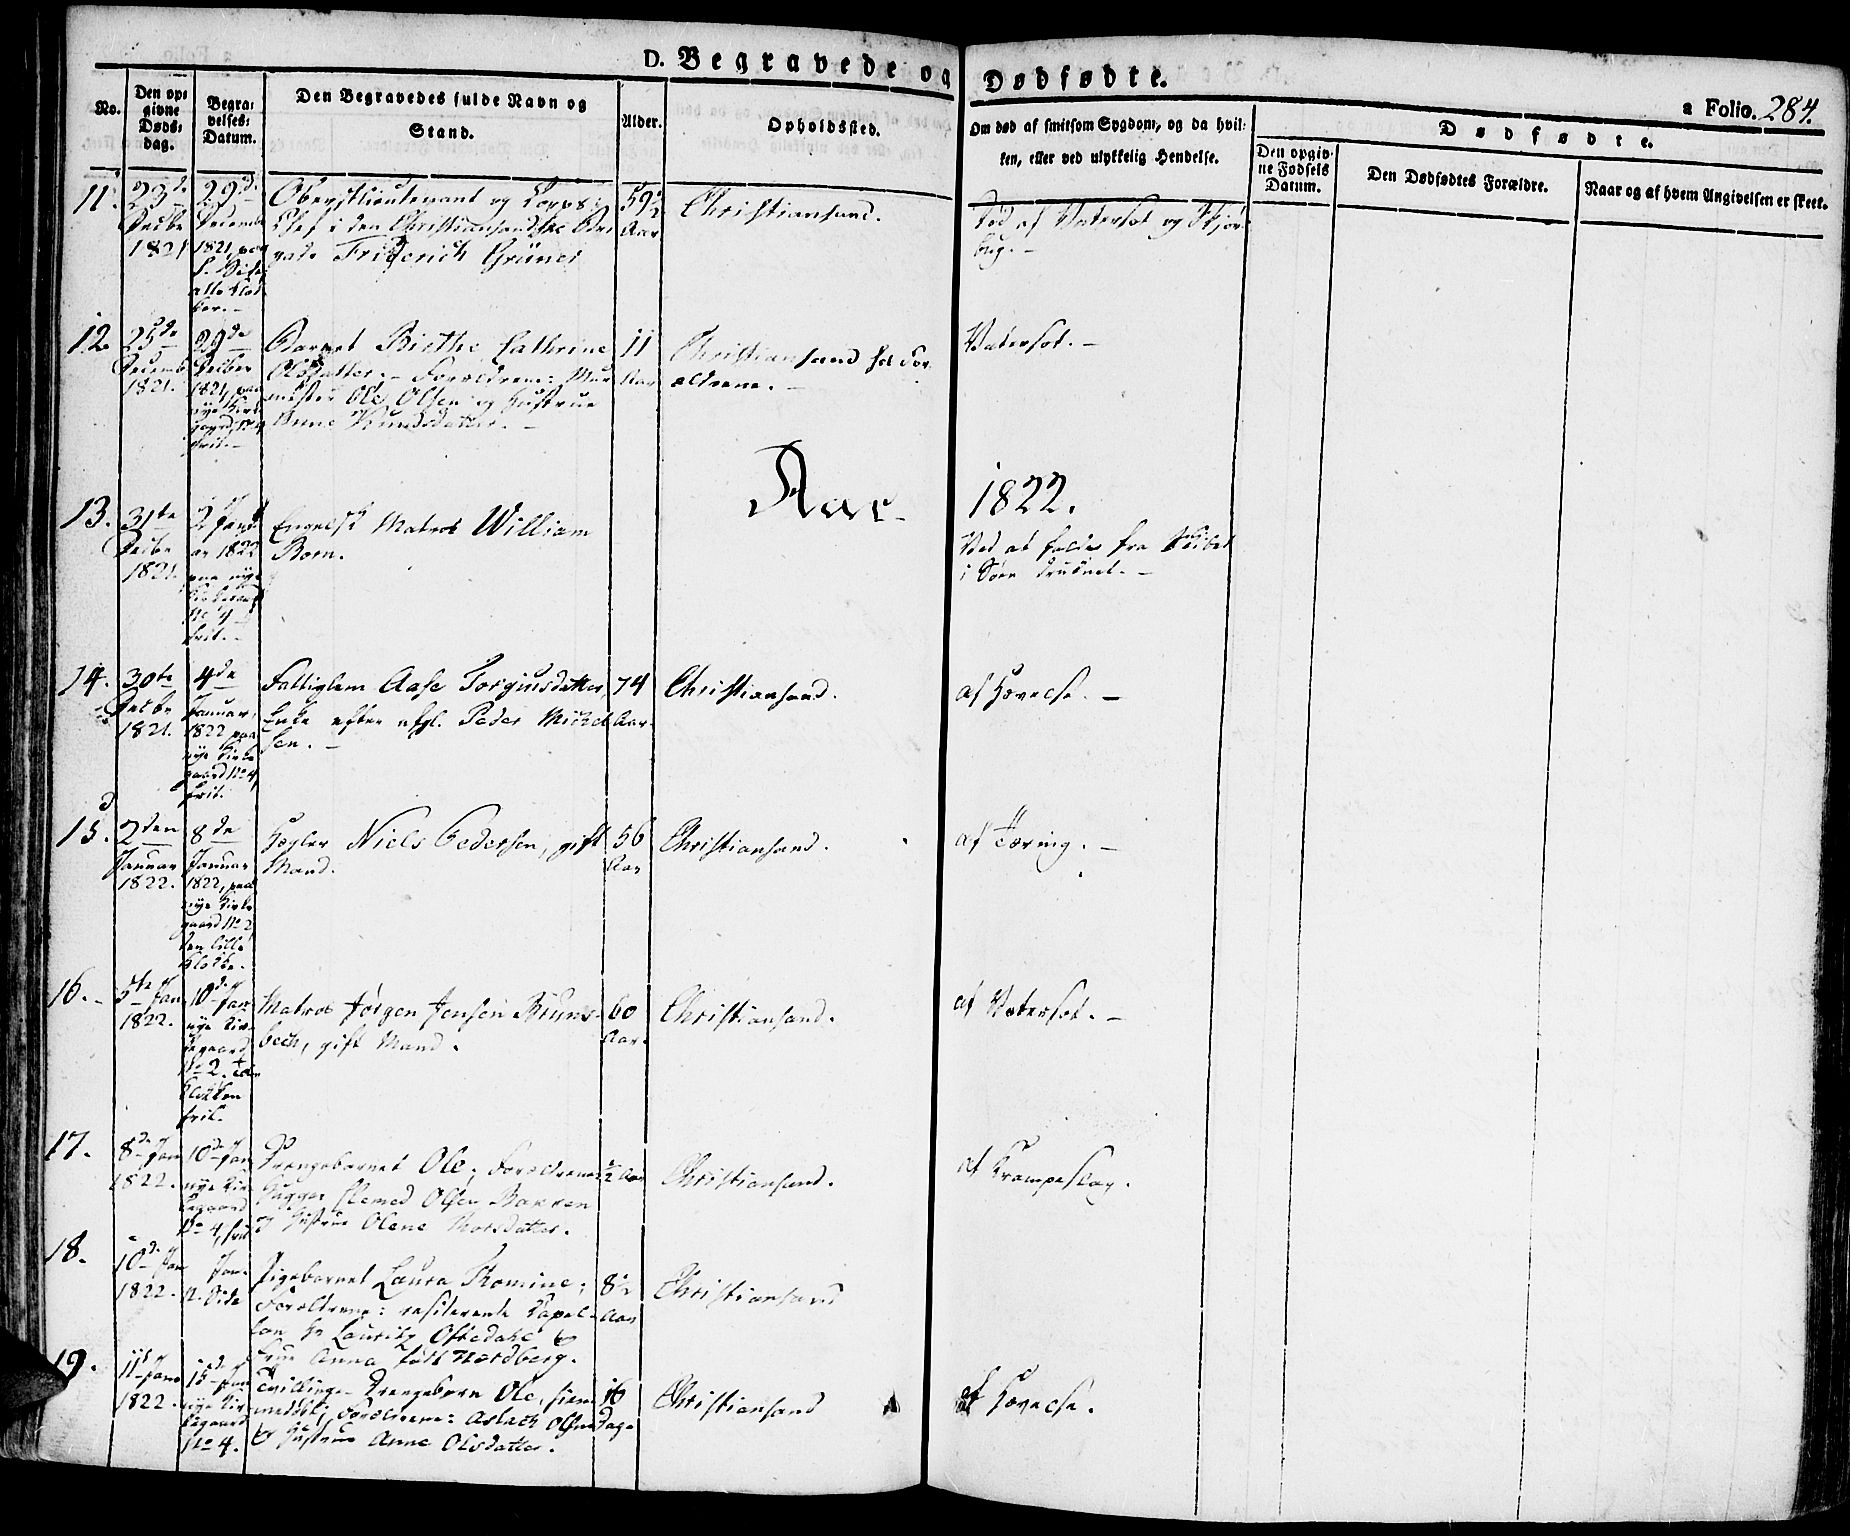 D. Begravede og Dødfødte.
a Folio. 284.
No.
Den op-
givne
Døds-
dag.
Begra-
velses-
Datum.
Den Begravedes fulde Navn og
Stand.
Alder.
Opholdssted.
Om død af smitsom Sygdom, og da hvil-
ken, eller ved ulykkelig Hendelse.
Dødfødte.
Den opgiv-
ne Fødsels
Datum.
Den Dødfødtes Forældre.
Naar og af hvem Angivelsen er skeet.
11.
23de
Decbr
1821
29de
Decembr
1821, paa
alle Klok
ker.
Oberstlieutenant og Corps-
Chef i den Christiansandske Bri
gade Friderich Grüner
59½
Aar
Christiansand.
Død af Vatersot og Skjør
bug. -
12.
25de
Decemb
1821.
29de
Decber
1821, paa
nye Kirke
gaard, No 4
frit. -
Barnet Birthe Cathrine
Olsdatter. - Forældrene: Mur
mester Ole Olsen og Hustrue
Anne Knudsdatter. -
11
Aar
Christiansand hos For
ældrene. -
Vatersot. -
Aar 1822.
13.
31te
Decbr
1821.
2 Janu
ar 1822
paa nye
Kirkegaard
No 4
frit. -
Engelsk Matros William
Born.
Ved at falde fra Skibet
i Søen druknet. -
14.
30te
Decbr
1821.
4de
Januar
1822 paa
nye Kirke
gaard No 4,
frit.
Fattiglem Aase Torgiusdatter,
Enke efter afgl. Peder Michel
sen. -
74
Aar.
Christiansand.
af Hævelse. -
15.
2den
Januar
1822.
8de
Januar
1822, paa
nye Kirke
gaard No 2
den lille
Klokke.
Niels Pedersen, gift
Mand.
56
Aar
Christiansand.
af Tæring. -
16. -
5te Jan
1822.
10de Jan
nye Kir-
kegaard
No 2.
Klokken
frit.
Matros Jørgen Jensen Bruns-
bech, gift Mand.
60
Aar.
Christiansand.
af Vatersot. -
17.
8de Jan
1822.
10de Jan
nye Kir
kegaard
No 4, frit
Drengebarnet Ole; Forældrene
Olsen Barken
& Hustrue Olene Thorsdatter.
½ Aar
Christiansand.
af Krampeslag.
18.
10de Jan
1822.
Jan.
Pigebarnet Laura Thomine;
Forældrene: residerende Capel-
lan Hr Lauritz Oftedahl &
Frue Anna født Nordberg.
8½
Aar
Christiansand
19.
11te Janr
1822.
15de Jan
nye Kir
kegaard
No 4.
Tvillinge-Drengebarn Ole, hjem
medøbt; Forældrene: Aslack Olsen
& Hustrue Anne Olsdatter.
16
Dage
Christiansand
af Hævelse.